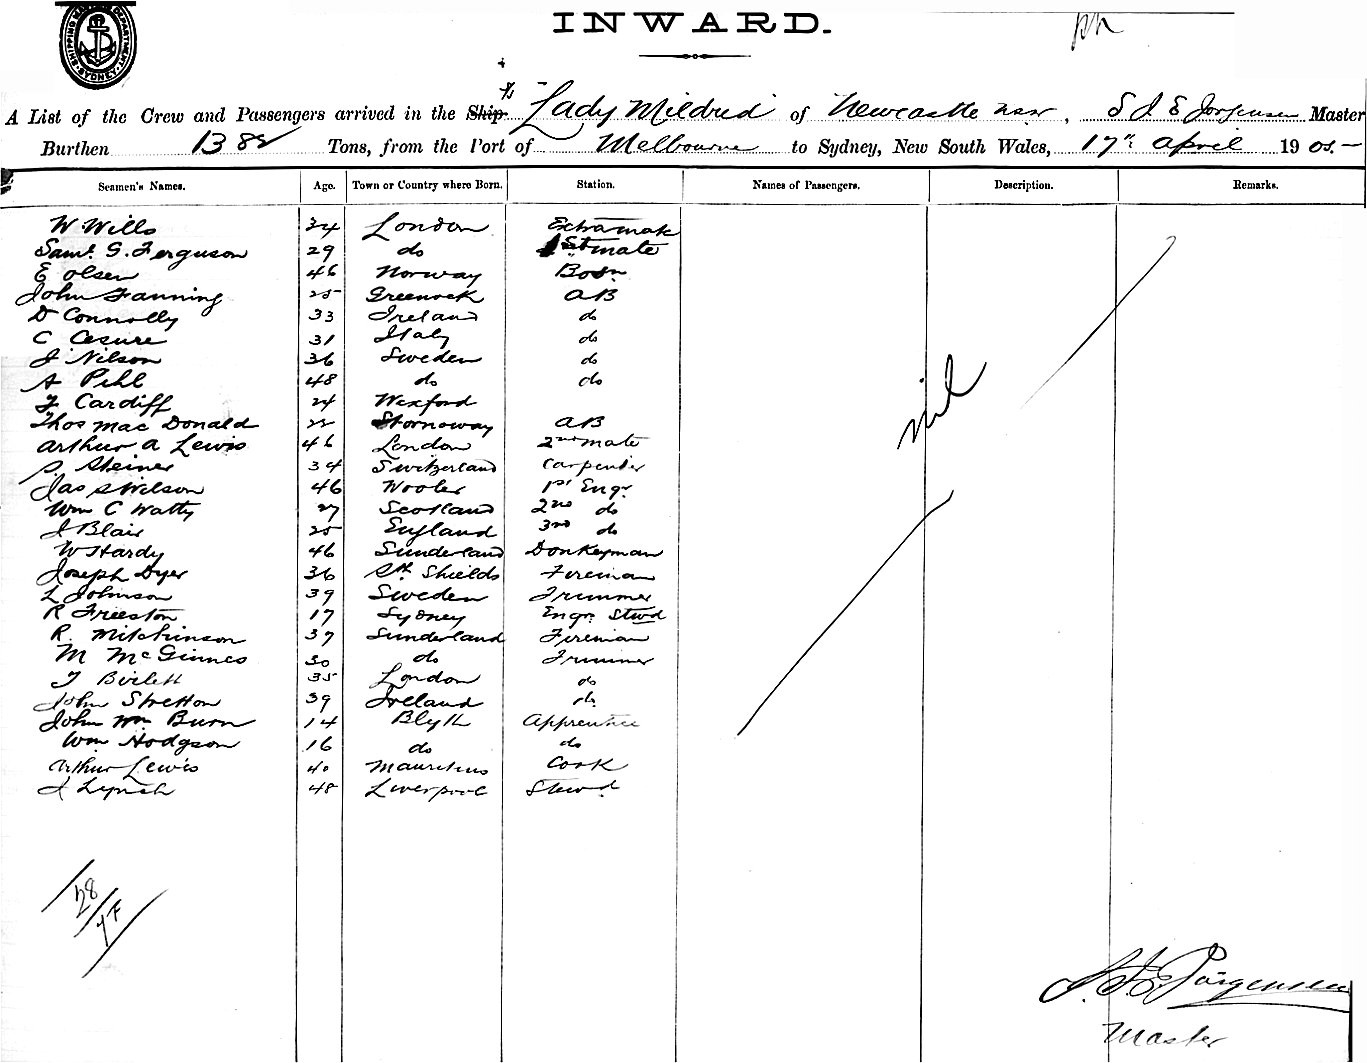 SHIPPING MASTER'S DEPARTMENT. SYDNEY.
INWARD.
A List of the Crew and Passengers arrived in the Ship Lady Mildred of Newcastle nsw, S J E Jorgensen Master
Burthen 1382 Tons, from the Port of Melbourne to Sydney, New South Wales, 17" April 1905.—
Seamen's Names. Age. Town or Country where Born. Station. Names of Passengers. Description. Remarks.
W Wills 34 London Extra mate
Saml. G. Ferguson 29 do 1st mate
E Olsen 46 Norway Bosn
John Fanning 25 Greenock AB
D Connolly 33 Ireland do
C Cesure 31 Italy do
J Nilson 36 Sweden do
A Pihl 48 do do
J Cardiff 24 Wexford
Thos Mac Donald 22 Stornoway AB
Arthur A Lewis 46 London 2nd mate
S. Steiner 34 Switzerland Carpenter
Jas S Wilson 46 Wooler 1st Engr
Wm C Watty 27 Scotland 2nd do
J Blair 25 England 3rd do
W Hardy 46 Sunderland Donkeyman
Joseph Dyer 36 Sth Shields Fireman
L Johnson 39 Sweden Trimmer
R Freeston 17 Sydney Engr. Stwd
R. Mitchinson 37 Sunderland Fireman
M McGinnes 30 do Trimmer
London 35 do
John Stretton 39 Ireland do
John Wm Burn 14 Blyth Apprentice
Wm Hodgson 16 do do
Arthur Lewis 40 Mauritius Cook
J Lynch 48 Liverpool Stewd
nil
28
S. J. E. Jörgensen
Master